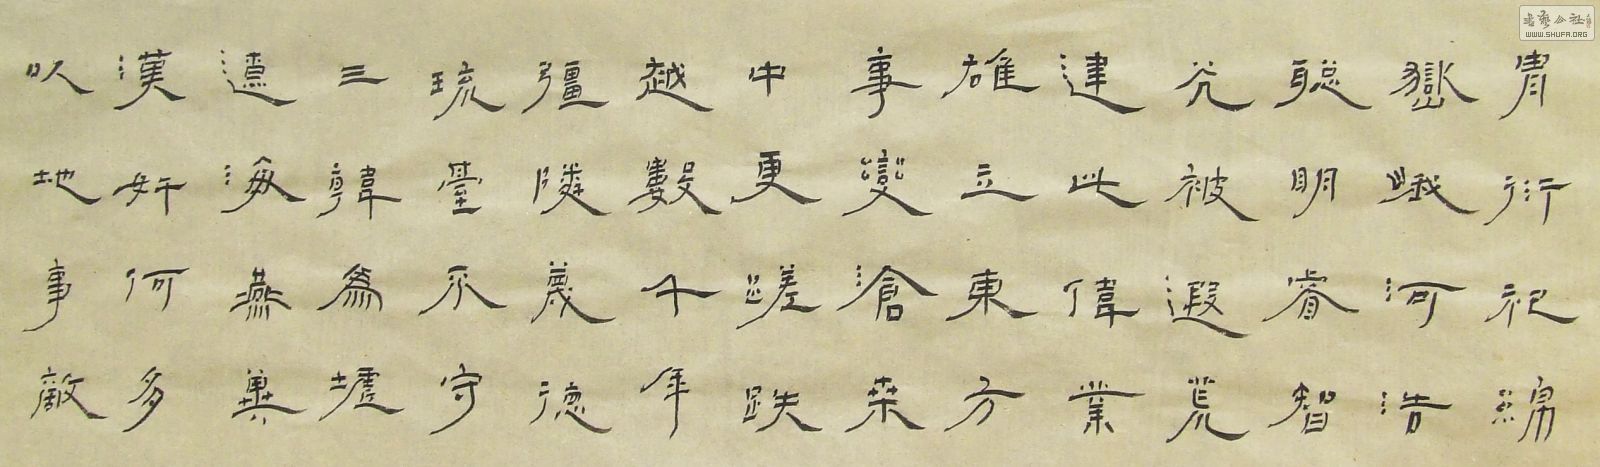 冑衍祀綿
嶽峨河浩
聰明睿智
光被遐荒
建此偉業
雄立東方
事變滄桑
中更蹉跌
越數千年
彊隣蔑德
琉臺不守
三韓為墟
遼海燕冀
漢奸何多
以地事敵
书艺公社
WWW.SHUFA.ORG